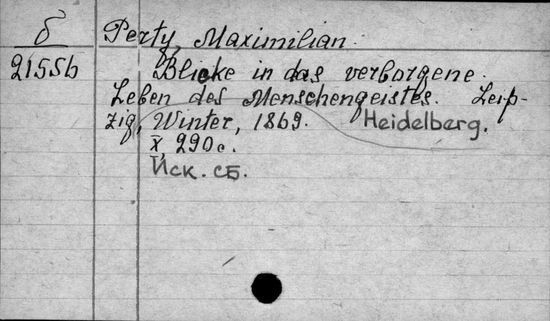 δ
21556
Perty, Maximilian.
Blicke in das verborgene
Leben des Menschengeistes. Leip-
zig, Winter, 1869. Heidelberg.
X, 290 с.
Иск. сБ.